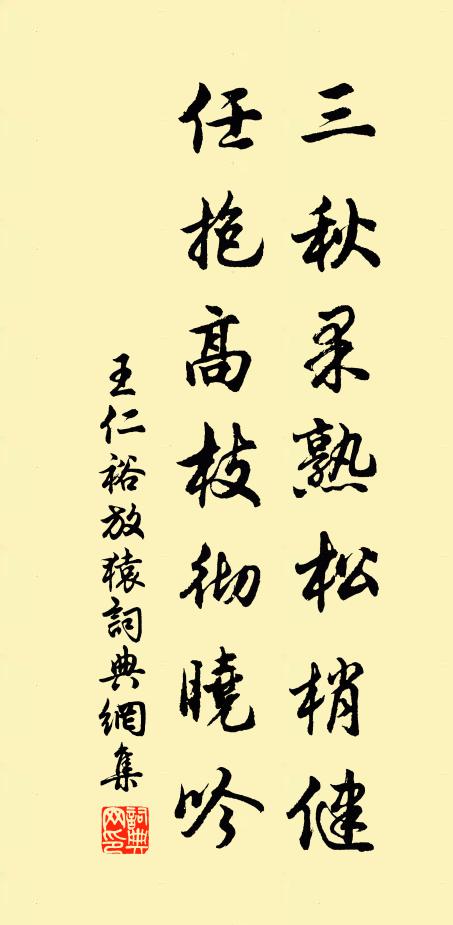 三秋果熟松梢健
任抱高枝彻曉吟
王仁裕放猿詞典網集
詞典网印